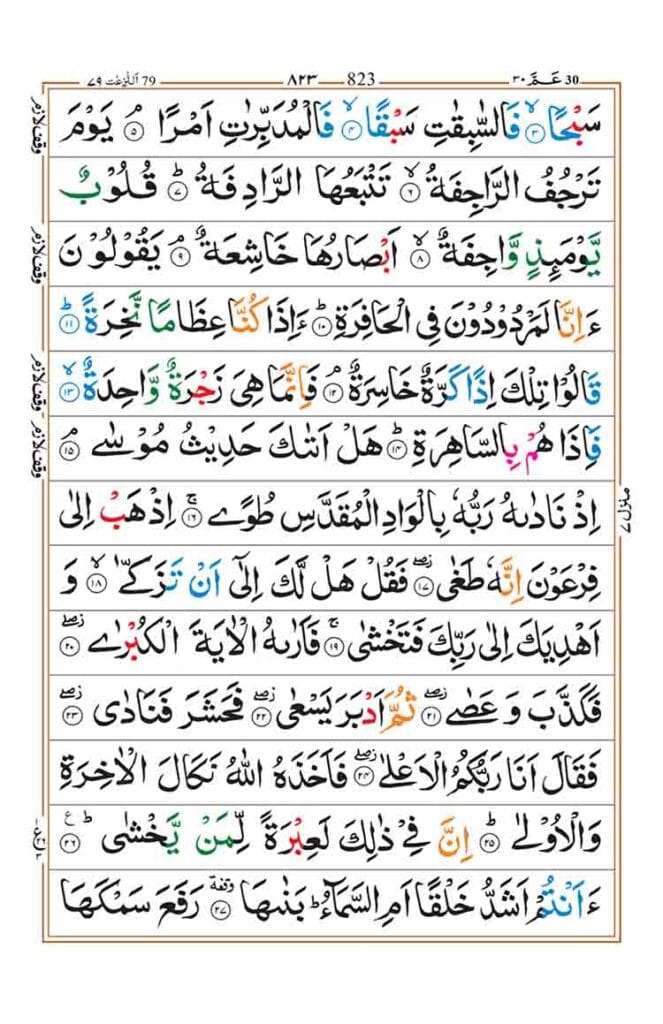 30 عَمَّ ٣٠
823 ٨٢٣
79 اَلنّٰزِعٰت ٧٩
سَبْحًا ۙ‏﴿۳﴾ فَالسّٰبِقٰتِ سَبْقًا ۙ‏﴿۴﴾ فَالْمُدَبِّرٰتِ اَمْرًا ۘ‏﴿۵﴾ يَوْمَ
تَرْجُفُ الرَّاجِفَةُ ۙ‏﴿۶﴾ تَتْبَعُهَا الرَّادِفَةُ ؕ‏﴿۷﴾ قُلُوْبٌ
يَّوْمَىِٕذٍ وَّاجِفَةٌ ۙ‏﴿۸﴾ اَبْصَارُهَا خَاشِعَةٌ ۘ‏﴿۹﴾ يَقُوْلُوْنَ
ءَاِنَّا لَمَرْدُوْدُوْنَ فِى الْحَافِرَةِ ؕ‏﴿۱۰﴾ ءَاِذَا كُنَّا عِظَامًا نَّخِرَةً ؕ‏﴿۱۱﴾
قَالُوْا تِلْكَ اِذًا كَرَّةٌ خَاسِرَةٌ ۘ‏﴿۱۲﴾ فَاِنَّمَا هِىَ زَجْرَةٌ وَّاحِدَةٌ ۙ‏﴿۱۳﴾
فَاِذَا هُمْ بِالسَّاهِرَةِ ؕ‏﴿۱۴﴾ هَلْ اَتٰٮكَ حَدِيْثُ مُوْسٰى ۘ‏﴿۱۵﴾
اِذْ نَادٰٮهُ رَبُّهٗ بِالْوَادِ الْمُقَدَّسِ طُوًى ۚ‏﴿۱۶﴾ اِذْهَبْ اِلٰى
فِرْعَوْنَ اِنَّهٗ طَغٰى ۖ‏﴿۱۷﴾ فَقُلْ هَلْ لَّكَ اِلٰٓى اَنْ تَزَكّٰى ۙ‏﴿۱۸﴾ وَ
اَهْدِيَكَ اِلٰى رَبِّكَ فَتَخْشٰى ۚ‏﴿۱۹﴾ فَاَرٰٮهُ الْاٰيَةَ الْكُبْرٰى ۖ‏﴿۲۰﴾
فَكَذَّبَ وَ عَصٰى ۖ‏﴿۲۱﴾ ثُمَّ اَدْبَرَ يَسْعٰى ۖ‏﴿۲۲﴾ فَحَشَرَ فَنَادٰى ۖ‏﴿۲۳﴾
فَقَالَ اَنَا رَبُّكُمُ الْاَعْلٰى ۖ‏﴿۲۴﴾ فَاَخَذَهُ اللّٰهُ نَكَالَ الْاٰخِرَةِ
وَالْاُوْلٰى ؕ‏﴿۲۵﴾ اِنَّ فِىْ ذٰلِكَ لَعِبْرَةً لِّمَنْ يَّخْشٰى ؕ‏﴿۲۶﴾
ءَاَنْتُمْ اَشَدُّ خَلْقًا اَمِ السَّمَآءُ ؕ بَنٰٮهَا ‏﴿۲۷﴾ وقفة رَفَعَ سَمْكَهَا
وقف لازم
وقف لازم
وقف لازم
وقف لازم
منزل ٧